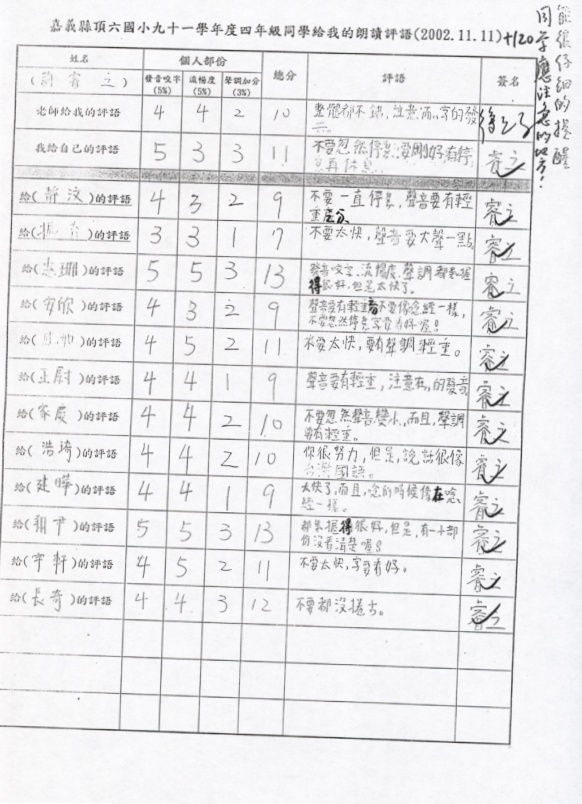 嘉義縣頂六國小九十一學年度四年級同學給我的朗讀評語(2002.11.11)+120
能很仔細的提醒
同學應注意的地方！
姓名 個人部份 總分 評語 簽名
(許睿之) 發音咬字(5%) 流暢度(5%) 聲調加分(3%)
老師給我的評語 4 4 2 10 整體都不錯，注意 字的發
我給自己的評語 5 3 3 11 不要忽然停息，要 睿之
給(靜汶)的評語 4 3 2 9 不要一直停息，聲音要有輕 睿之
重區分。
給( )的評語 3 3 1 7 不要太快，聲音要大聲一點。 睿之
給(惠珊)的評語 5 5 3 13 發音咬字、流暢度、聲調都把握 睿之
得很好，但是太快了。
給(安欣)的評語 4 3 2 9 聲音要有輕重 不要像唸經一樣， 睿之
不要忽然停息，字要看好喔！
給( )的評語 4 5 2 11 不要太快，要有聲調輕重。 睿之
給(正尉)的評語 4 4 1 9 聲音要有輕重，注意 的發音 睿之
給(家慶)的評語 4 4 2 10 不要忽然聲音變小，而且，聲調 睿之
要有輕重。
給(浩琦)的評語 4 4 2 10 你很努力，但是，說話很像 睿之
台灣國語。
給(建曄)的評語 4 4 1 9 太快了，而且，唸的時候像在唸 睿之
經一樣。
給(翔尹)的評語 5 5 3 13 都掌握得很好，但是，有一小部 睿之
份沒看清楚喔！
給(宇軒)的評語 4 5 2 11 不要太快，字要看好。 睿之
給(長奇)的評語 4 4 3 12 不要都沒捲舌。 睿之